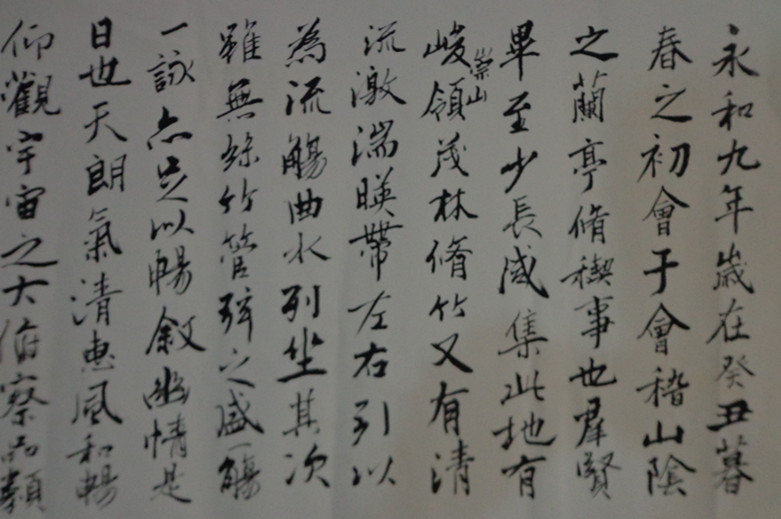 永和九年歲在癸丑暮
春之初會于會稽山陰
之蘭亭脩稧事也羣賢
畢至少長咸集此地有
崇山峻領茂林脩竹又有清
流激湍暎帶左右引以
為流觴曲水列坐其次
雖無絲竹管弦之盛一觴
一詠亦足以暢敘幽情是
日也天朗氣清惠風和暢
仰觀宇宙之大俯察品類